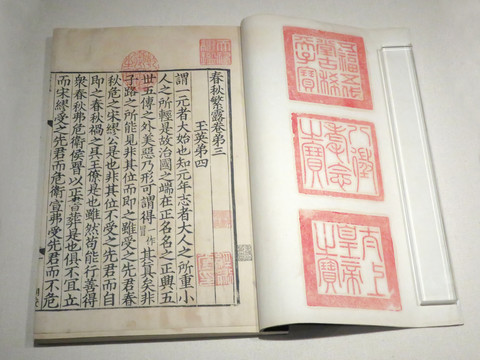 五福五
代堂古稀
天子寶
八徵
耄念
之寶
太上
皇帝
之寶
春秋繁露卷第三
玉英第四
謂一元者大始也知元年志者大人之所重小
人之所輕是故治國之端在正名名之正興五
世五傳之外美惡乃形可謂得作其真矣非
子路之所能見非其位而即之雖受之先君春
秋危之宋繆公是也非其位不受之先君而自
即之春秋禍之吳王僚是也雖然苟能行善得
衆春秋弗危衛侯晉以正書葬是也俱不宜立
而宋繆受之先君而不危衛宣弗受先君而不危